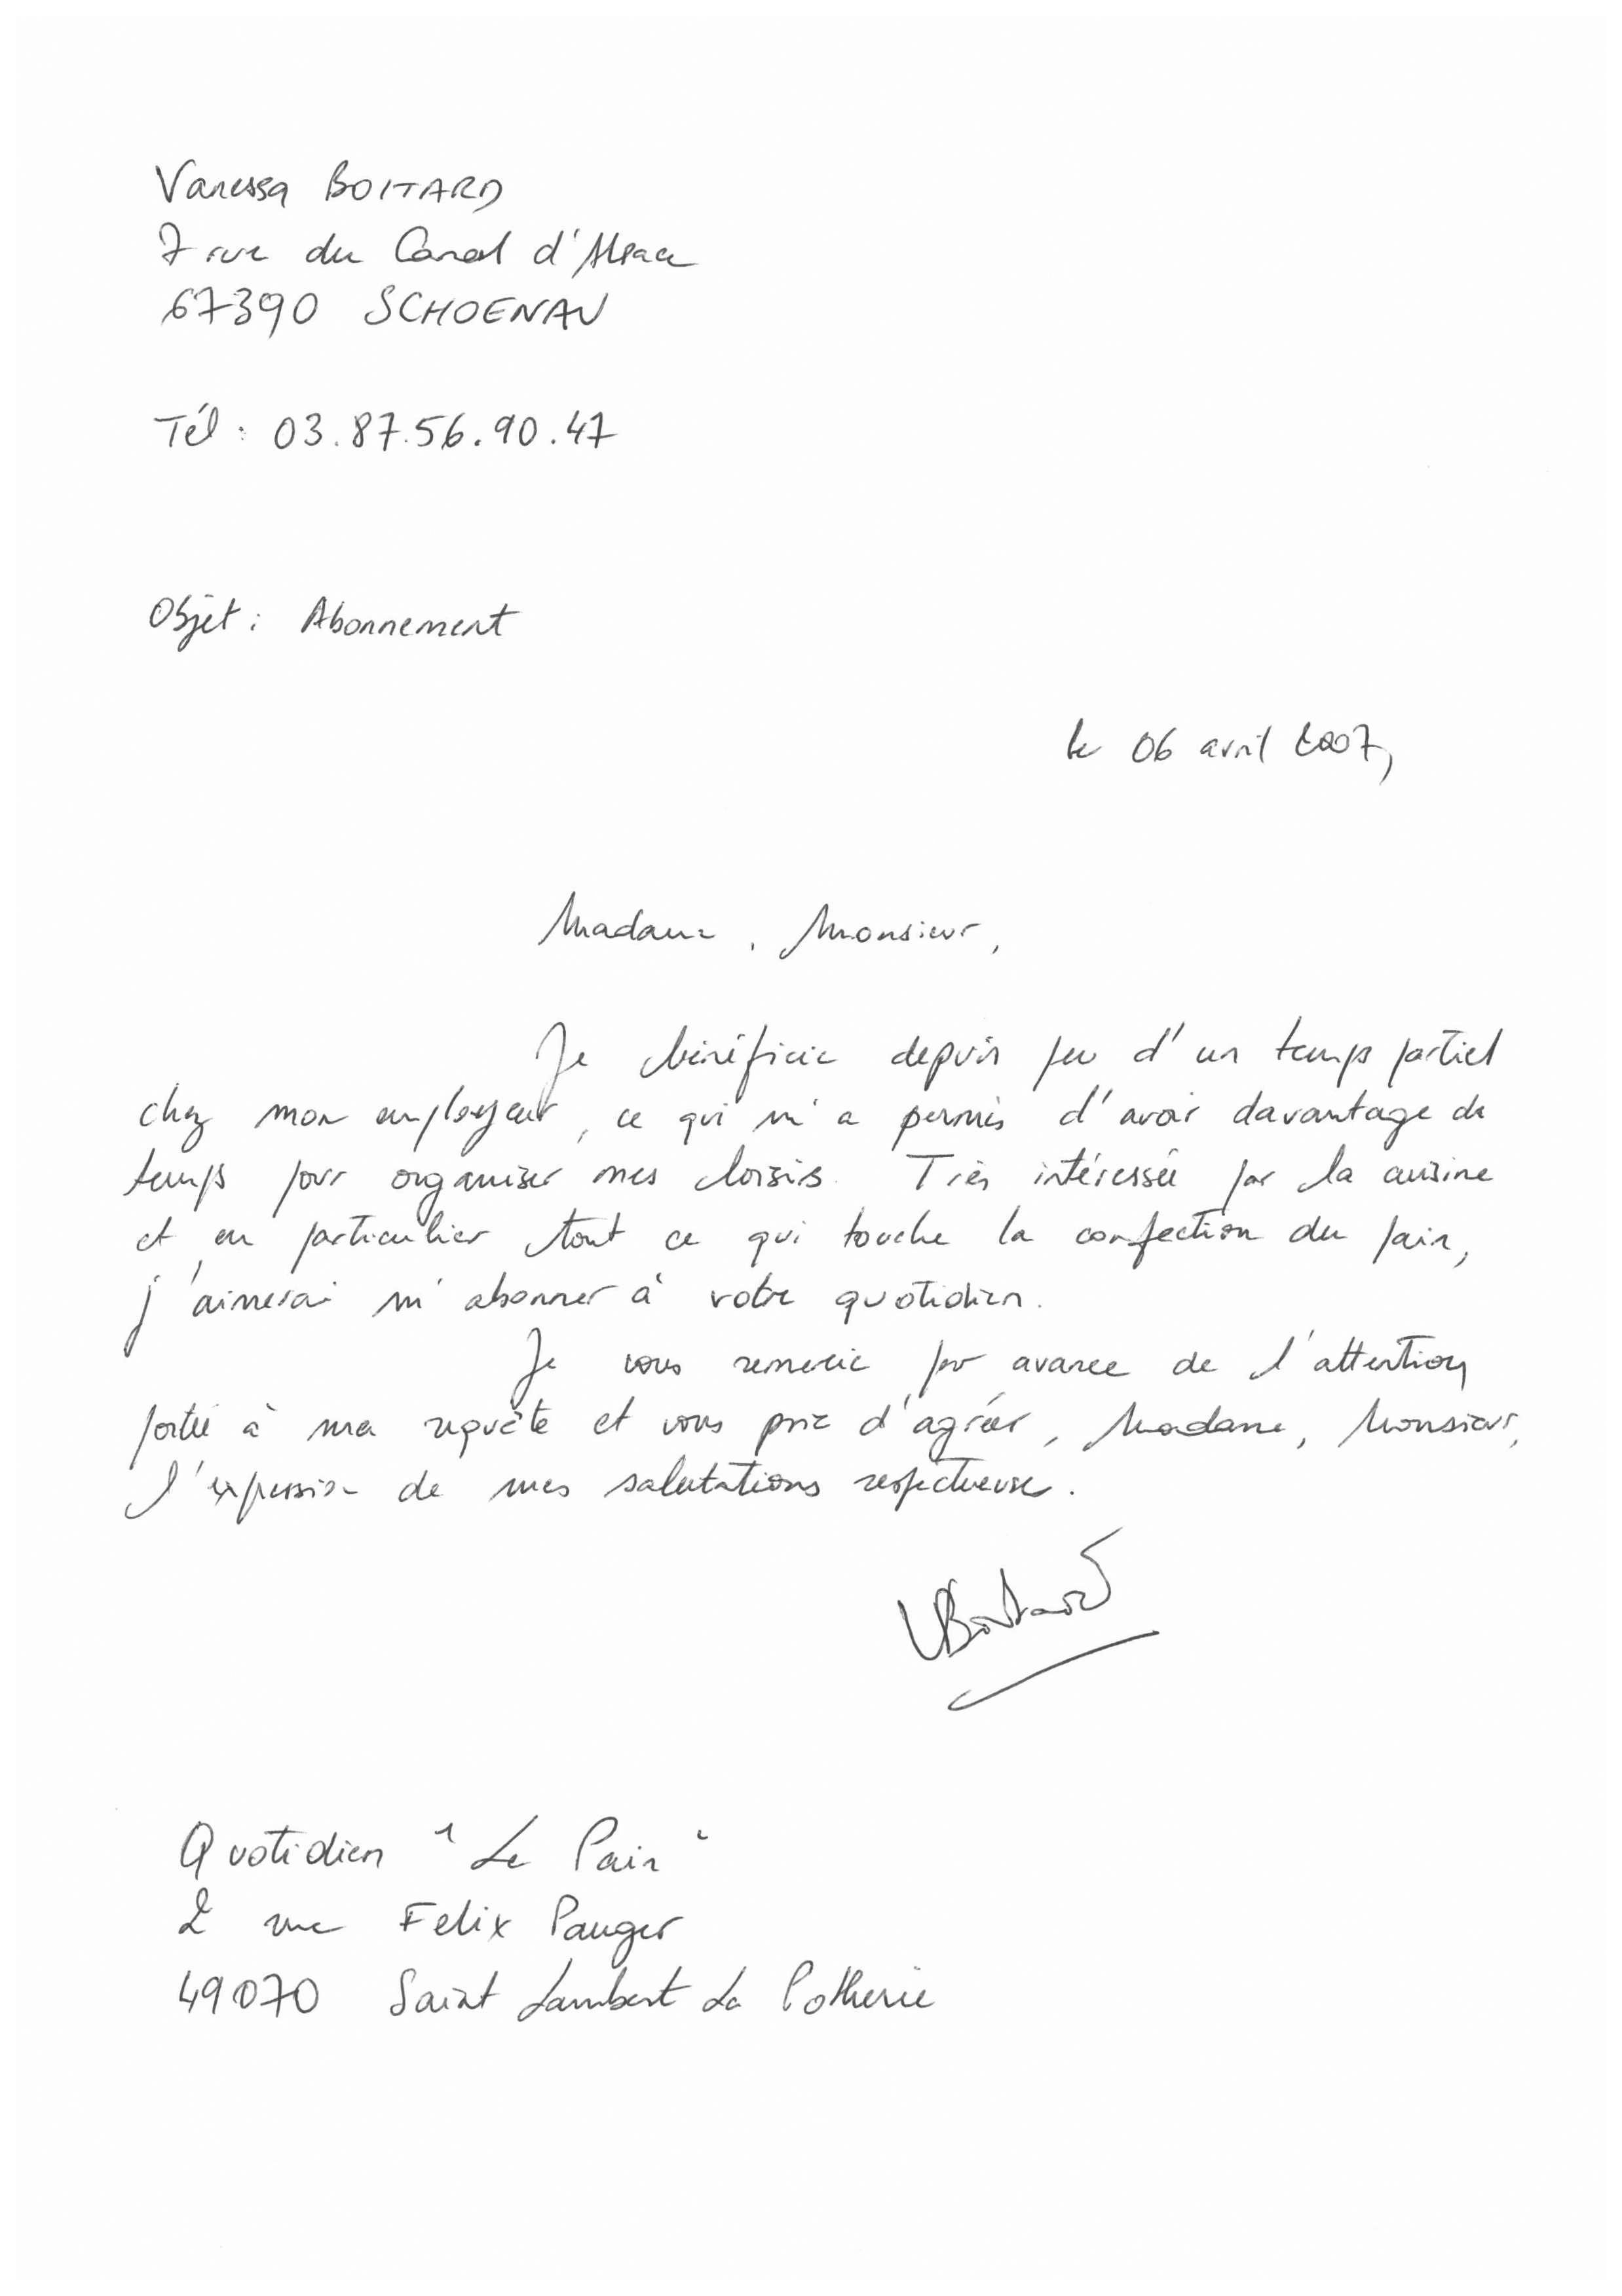 Vanessa BOITARD
7 rue du Canal d'Alsace
67390 SCHOENAU
Tél : 03.87.56.90.47
Objet : Abonnement
le 06 avril 2007,
Madame, Monsieur,
Je bénéficie depuis peu d'un temps partiel
chez mon employeur, ce qui m'a permis d'avoir davantage de
temps pour organiser mes loisirs. Très intéressée par la cuisine
et en particulier tout ce qui touche la confection du pain,
j'aimerai m'abonner à votre quotidien.
Je vous remercie par avance de l'attention
portée à ma requête et vous prie d'agréer, Madame, Monsieur,
l'expression de mes salutations respectueuses.
VBoitard
Quotidien "Le Pain"
2 rue Felix Pauger
49070 Saint Lambert La Potherie